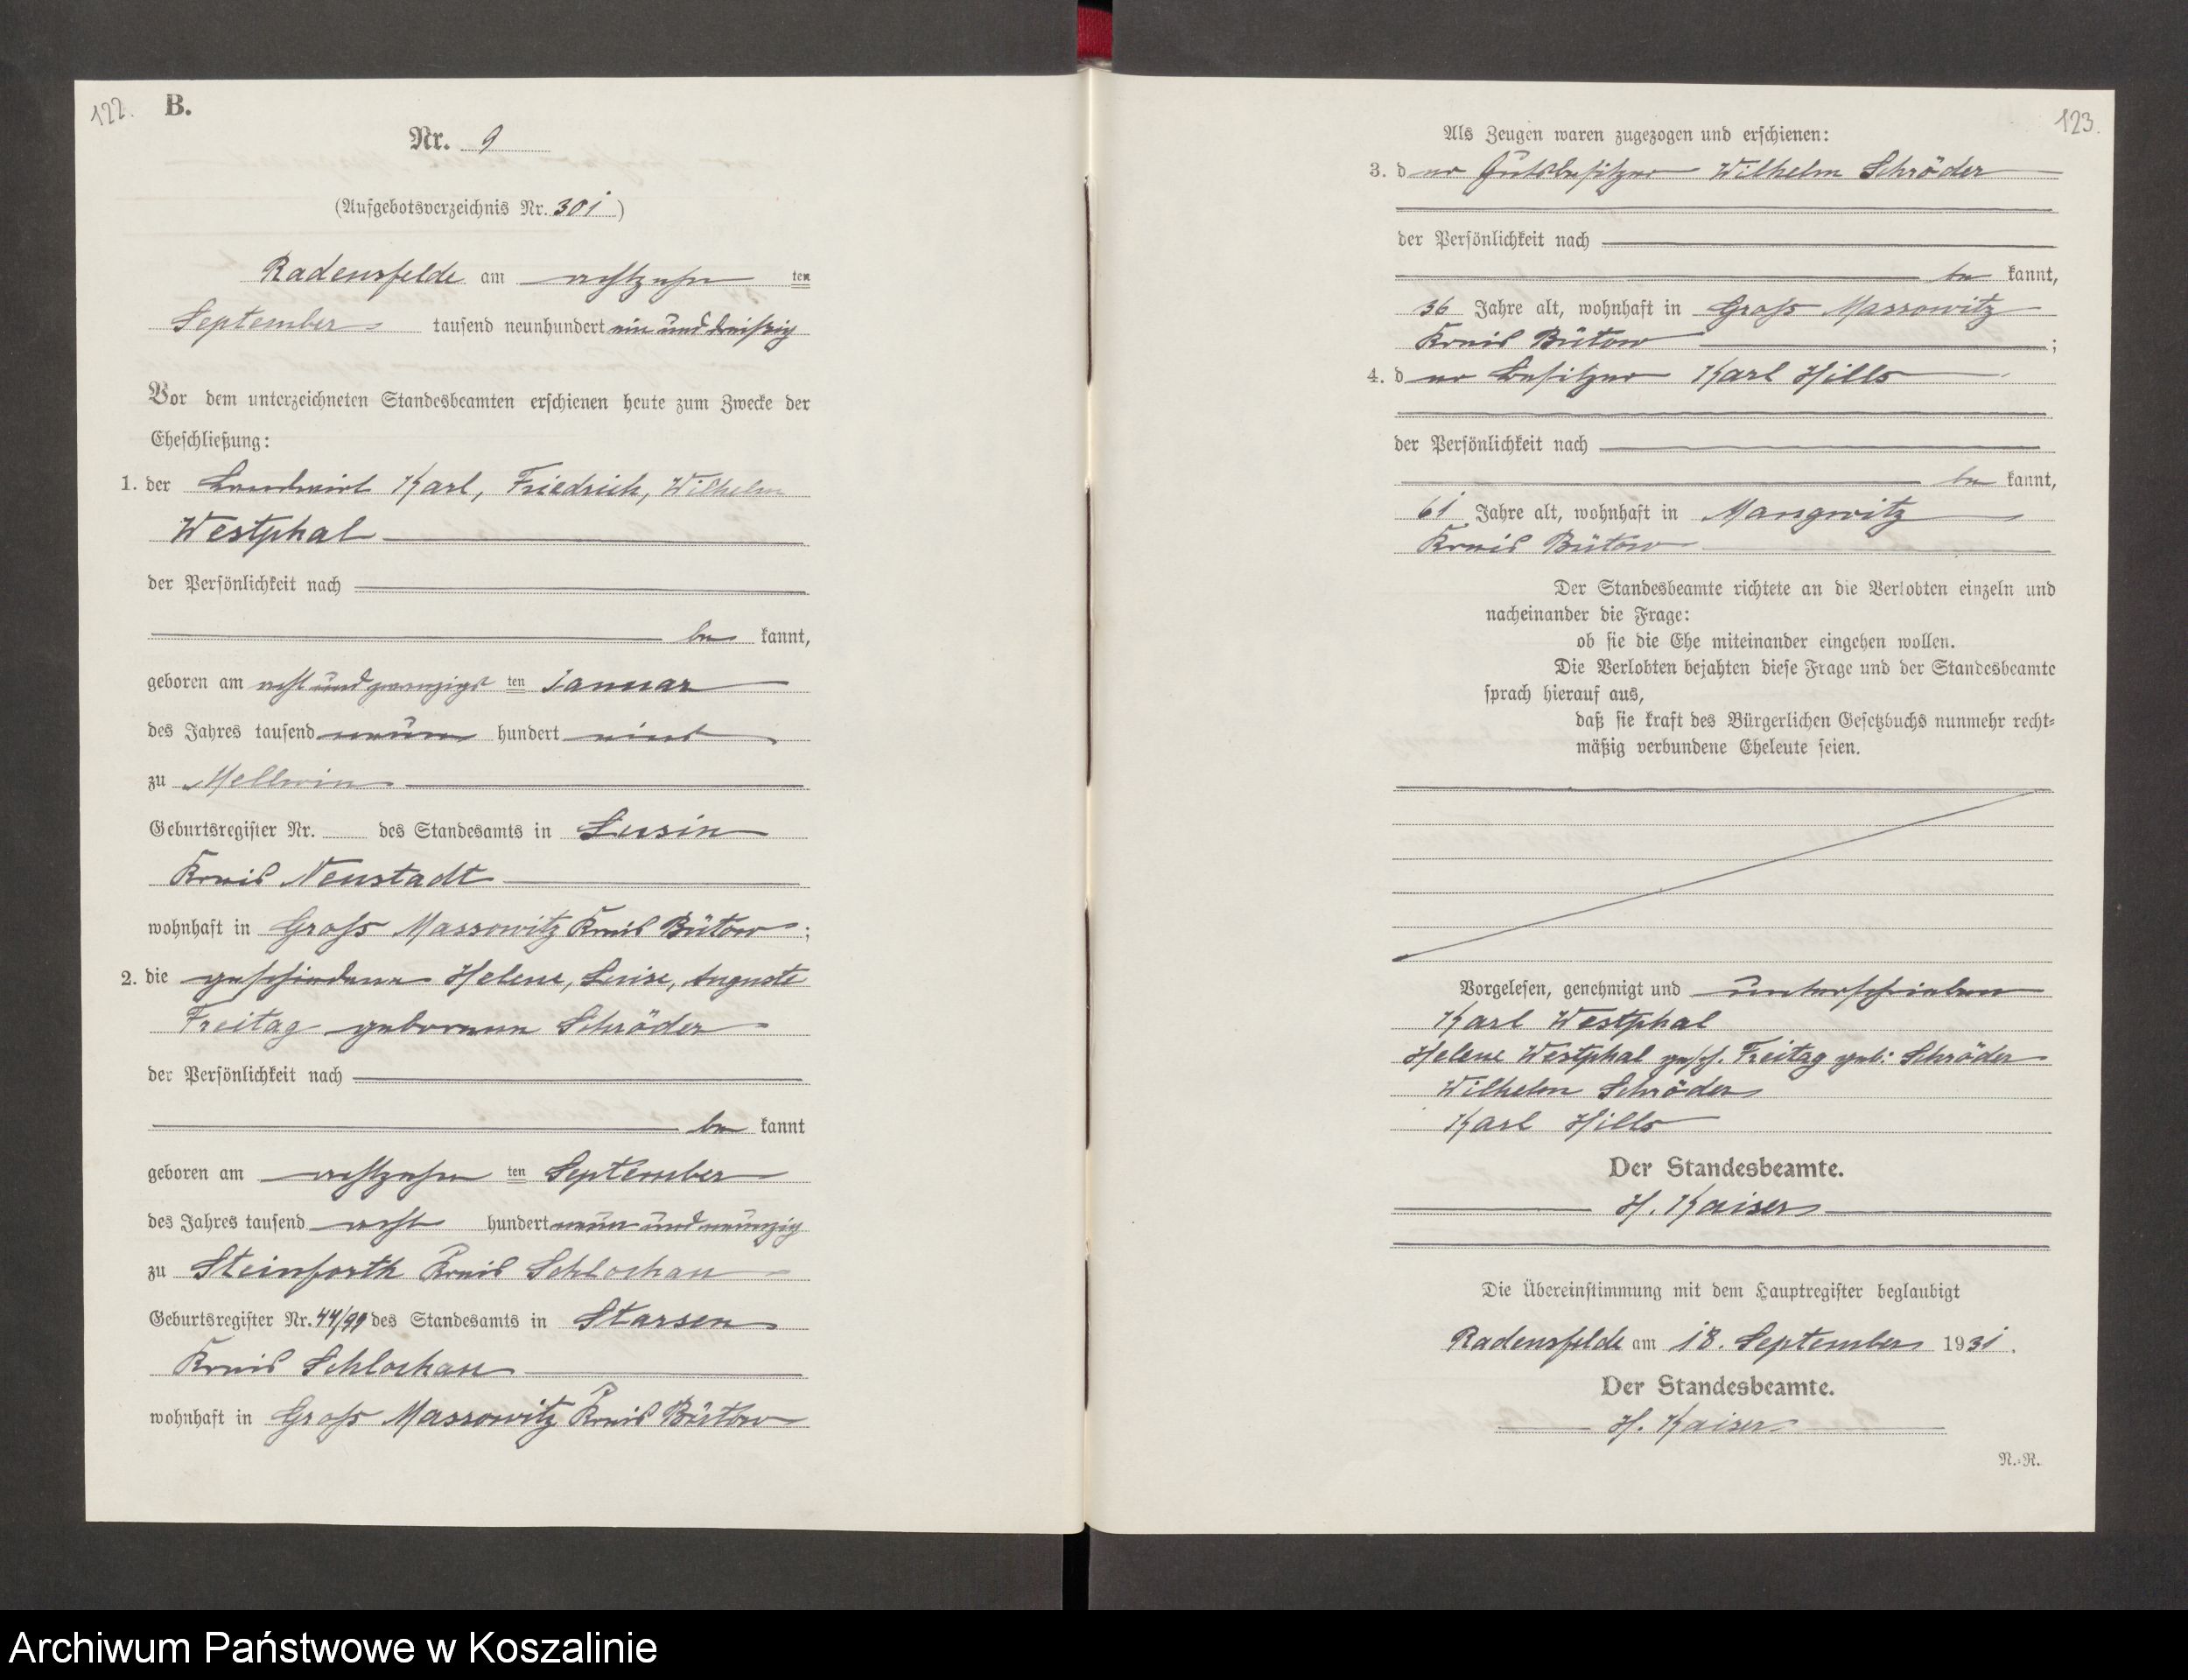 122.
B.
Nr. 9
(Aufgebotsverzeichnis Nr. 301)
Radensfelde am achtzehn ten
September tausend neunhundert ein und dreißig
Vor dem unterzeichneten Standesbeamten erschienen heute zum Zwecke der
Eheschließung:
1. der Landwirt Karl, Friedrich, Wilhelm
Westphal
der Persönlichkeit nach
be kannt,
geboren am acht und zwanzigst ten Januar
des Jahres tausend neun hundert eins
zu Mellwin
Geburtsregister Nr. des Standesamts in Lusin
Kreis Neustadt
wohnhaft in Groß Massowitz Kreis Bütow;
2. die geschiedene Helene, Luise, Auguste
Freitag geborenen Schröder
der Persönlichkeit nach
be kannt
geboren am achtzehn ten September
des Jahres tausend acht hundert neun und neunzig
zu Steinforth Kreis Schlochau
Geburtsregister Nr. 44/99 des Standesamts in Starsen
Kreis Schlochau
wohnhaft in Groß Massowitz Kreis Bütow
123.
Als Zeugen waren zugezogen und erschienen:
3. d er Gutsbesitzer Wilhelm Schröder
der Persönlichkeit nach
be kannt,
36 Jahre alt, wohnhaft in Groß Massowitz
Kreis Bütow;
4. d er Besitzer Karl Hills
der Persönlichkeit nach
be kannt,
61 Jahre alt, wohnhaft in Mangwitz
Kreis Bütow
Der Standesbeamte richtete an die Verlobten einzeln und
nacheinander die Frage:
ob sie die Ehe miteinander eingehen wollen.
Die Verlobten bejahten diese Frage und der Standesbeamte
sprach hierauf aus,
daß sie kraft des Bürgerlichen Gesetzbuchs nunmehr recht-
mäßig verbundene Eheleute seien.
Vorgelesen, genehmigt und unterschrieben
Karl Westphal
Helene Westphal gesch. Freitag geb: Schröder
Wilhelm Schröder
Karl Hills
Der Standesbeamte.
H. Kaiser
Die Übereinstimmung mit dem Hauptregister beglaubigt
Radensfelde am 18. September 1931.
Der Standesbeamte.
H. Kaiser
N.-R.
Archiwum Państwowe w Koszalinie